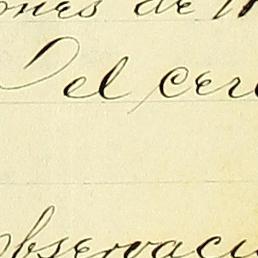 ones de
Del cere
observaci